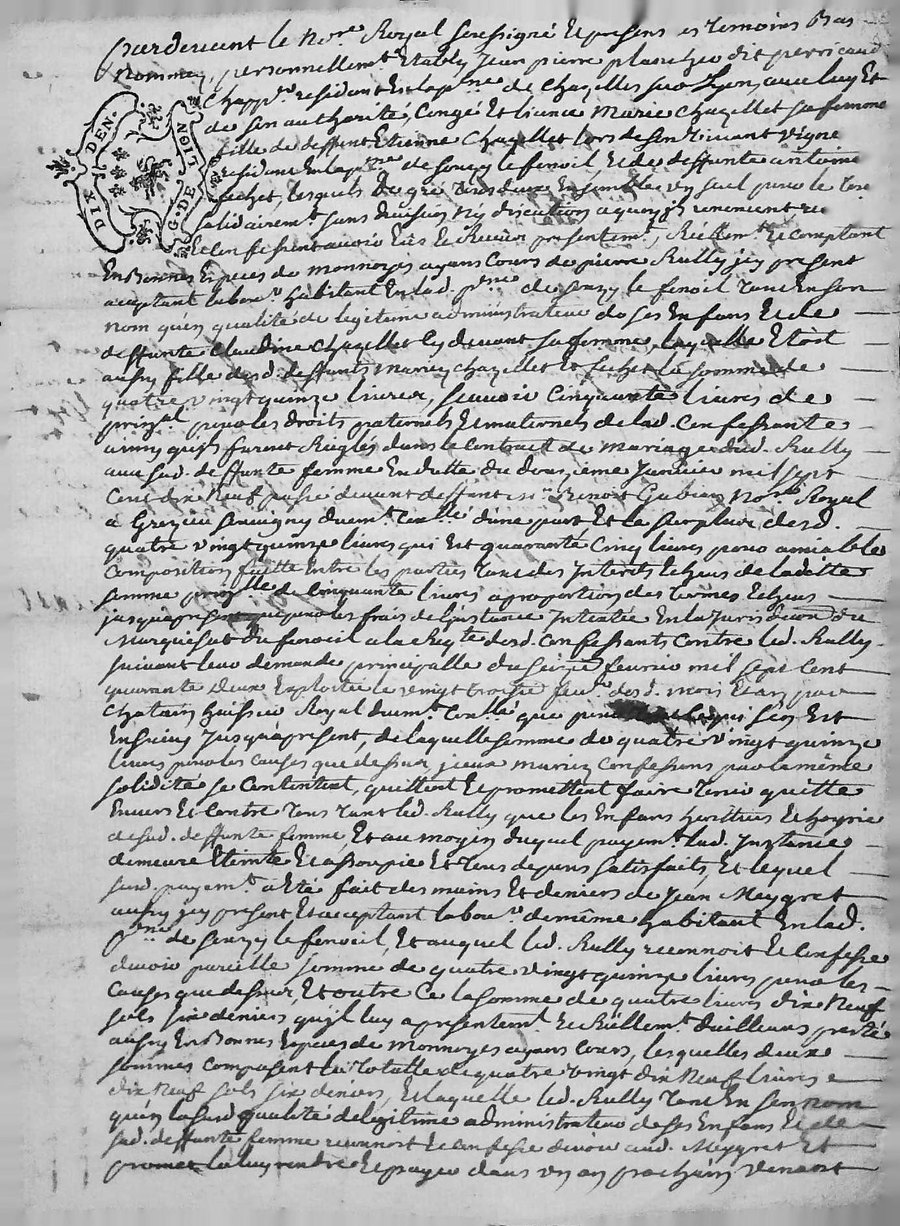 pardevant le No.re Royal soussigné Et present es temoins Bas
Nommez, personnellem.t Etably Jean pierre dit perricaud
Chapp.r residant En la p.sse de Chazelles sur Lyon, avec luy Et
de son authorité, Congé Et licence Marie Chazellet sa femme
fille de deffunt Etienne Chazellet lors de son vivant vigneron
residant En la p.sse de Souzy le fenoil, Et de deffunte antoinette
sechet, lesquels de gré tous deux Ensembles un seul pour le tout
solidairement sans division Ny discution a quoy ils renoncent
Et Confessent avoir Eus Et Receus presentem.t, Réellem.t Et comptant
En Bonnes Especes de monnoyes ayans Cours de pierre Rully icy present
acceptant labou.r habitant En lad. p.sse de Souzy le fenoil tant En son
nom qu'en qualité de legitime administrateur de ses Enfans Et de
deffunte Claudine Chazellet Cy devant sa femme, laquelle Etoit
aussy fille desd. deffunts mariez Chazellet Et sechet la somme de
quatre vingt quinze livres, sçavoir Cinquante livres de
prinp.al pour les droits paternels Et maternels de lad. Confessante
ainsy qu'ils furent Reglés dans le Contract de Mariage dud. Rully
avec sad. deffunte femme En datte du douzieme Janvier mil sept
Cent dix Neuf passé devant deffunt m.e Benoit Gubian No.re Royal
a Grezieu Souvigny d'une part Et le surplus desd.
quatre vingt quinze livres qui Est quarante Cinq livres pour amiable
Composition faitte Entre les parties tant des Interets Echus de ladette
somme prin.lle de Cinquante livres a proportion des termes Echus
jusqu'apresent que pour les frais de l'instance Intentée En la Jurisdiction du
Marquisat du fenoil a la Req.te desd. Confessants Contre led. Rully
suivant leur demande principalle du seize fevrier mil sept cent
quarante deux Exploitée le vingt trois feu.r desd. mois Et an par
Chatain huissier Royal que pour qui s'en Est
Ensuivi Jusqu'apresent, de laquelle somme de quatre vingt quinze
livres pour les Causes que dessus, iceux mariez Confessans par la même
solidité se Contentent, quittent Et promettent faire tenir quitte
Envers Et Contre tous tant led. Rully que les Enfans heritiers Et hoyrie
de sad. deffunte femme, Et au moyen duquel payem.t lad. Instance
demeure Eteinte Et assoupie Et tous depens satisfaits, Et lequel
susd. payem.t a Eté fait des mains Et deniers de Jean Meygret
aussy icy present Et acceptant labou.r demême habitant En lad.
p.sse de Souzy le fenoil, Et auquel led. Rully reconnoit Et Confesse
devoir pareille somme de quatre vingt quinze livres pour les
Causes que dessus, Et outre Ce la somme de quatre livres dix Neuf
sols six deniers qu'il luy a presentem.t Et Réellem.t d'ailleurs presté
aussy En Bonnes Especes de Monnoyes ayans Cours, lesquelles deux
sommes composent la totalle de quatre vingt dix Neuf livres
dix Neuf sols six deniers, Et laquelle led. Rully tant En son nom
qu'en lasusd. qualité de legitime administrateur de ses Enfans Et de
sad. deffunte femme reconnoit Et Confesse devoir aud. Meygret Et
promet la luy rendre Et payer dans un an prochain venant
DIX DEN.
G. DE LION